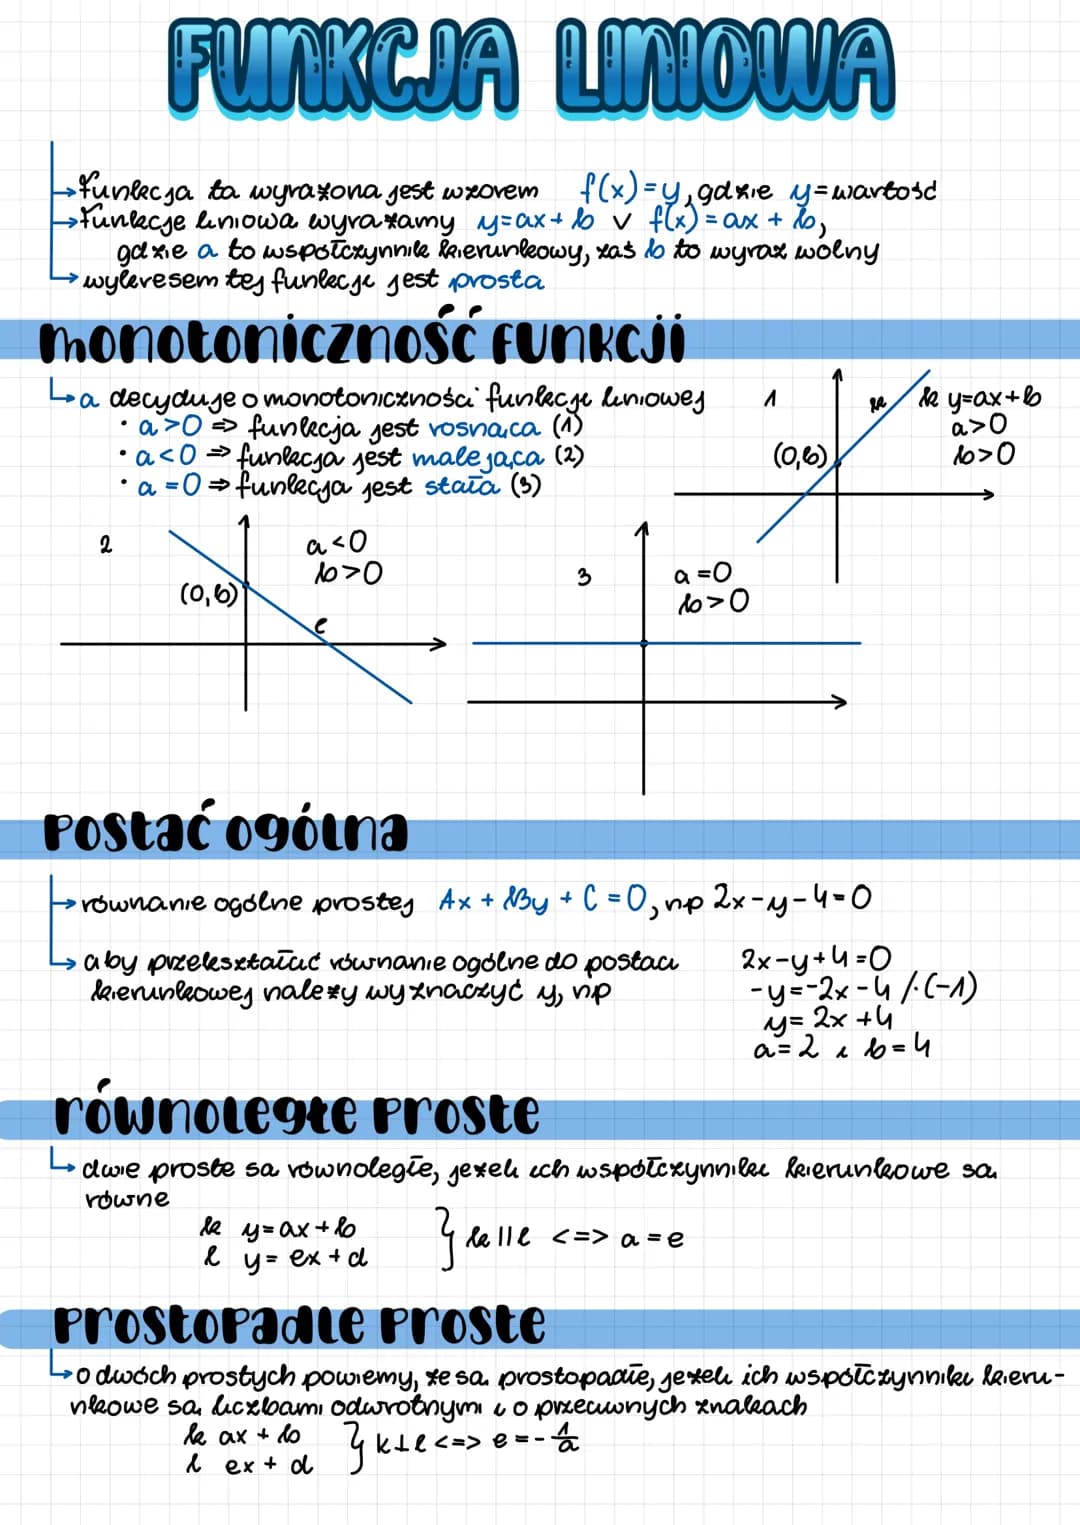 FUNKCJA LINIOWA
funkcja ta wyrażona jest wzorem f(x)=y, gdzie y=wartość
funkcje liniowa wyrażamy y=ax+b v f(x)=ax+b,
gdzie a to współczynnik kierunkowy, zaś b to wyraz wolny
wykresem tej funkcji jest prosta
monotoniczność funkcji
a decyduje o monotoniczności funkcji liniowej
• a>0 ⇒ funkcja jest rosnąca (1)
• a<0 ⇒ funkcja jest malejąca (2)
• a=0 ⇒ funkcja jest stała (3)
1
k
k y=ax+b
a>0
b>0
(0,b)
2
a<0
b>0
(0,b)
l
3
a=0
b>0
Postać ogólna
równanie ogólne prostej Ax + By + C = 0, np 2x-y-4=0
aby przekształcić równanie ogólne do postaci
kierunkowej należy wyznaczyć y, np
2x-y+4=0
-y=-2x-4 /·(-1)
y= 2x +4
a=2 i b=4
równoległe proste
dwie proste są równoległe, jeżeli ich współczynniki kierunkowe są
równe
k y=ax+b
l y= ex+d
} k||l <=> a=e
Prostopadłe proste
o dwóch prostych powiemy, że są prostopadłe, jeżeli ich współczynniki kieru-
nkowe są liczbami odwrotnymi i o przeciwnych znakach
k ax + b
l ex + d
} k⊥l <=> e=-1/a